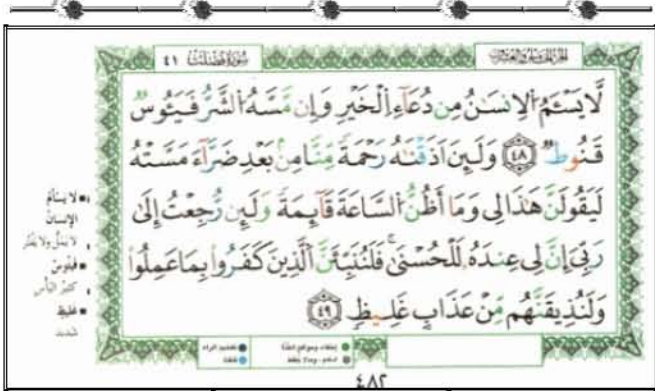 سورة فصلت ٤١
لَّا يَسْـَٔمُ ٱلْإِنسَـٰنُ مِن دُعَآءِ ٱلْخَيْرِ وَإِن مَّسَّهُ ٱلشَّرُّ فَيَـُٔوسٌ
قَنُوطٌ ﴿٤٨﴾ وَلَئِنْ أَذَقْنَـٰهُ رَحْمَةً مِّنَّا مِنۢ بَعْدِ ضَرَّآءَ مَسَّتْهُ
لَيَقُولَنَّ هَـٰذَا لِى وَمَآ أَظُنُّ ٱلسَّاعَةَ قَآئِمَةً وَلَئِن رُّجِعْتُ إِلَىٰ
رَبِّىٓ إِنَّ لِى عِندَهُۥ لَلْحُسْنَىٰ ۚ فَلَنُنَبِّئَنَّ ٱلَّذِينَ كَفَرُوا۟ بِمَا عَمِلُوا۟
وَلَنُذِيقَنَّهُم مِّنْ عَذَابٍ غَلِيظٍ ﴿٤٩﴾
لا يسأم
الإنسان
لا يمل ولا يفتر
فيئوس
كثير اليأس
غليظ
شديد
٤٨٢